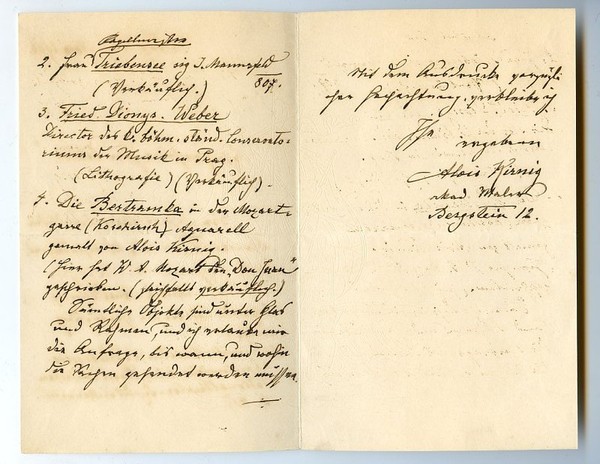 Kapellmeister
2. Frau Triebensee sig J. Mannsfeld
(Verkäuflich.) 807.
3. Fried. Dionys. Weber
Director des k. böhm. ständ. Conservato-
riums der Musik in Prag.
(Lithografie) (Verkäuflich).
4. Die Bertramka in der Mozart-
gasse (Koschirsch) Aquarell
gemalt von Alois Kirnig.
(Hier hat W. A. Mozart den „Don Juan"
geschrieben. (verkäuflich.)
Sämtliche Objekte sind unter Glas
und Rahmen, und ich erlaube mir
die Anfrage, bis wann, und wohin
die Sachen gesendet werden müssen.
Mit dem Ausdrucke vorzügli
cher Hochachtung, verbleibe ich
Ihr ergebener
Alois Kirnig
akad Maler
Bergstein 12.